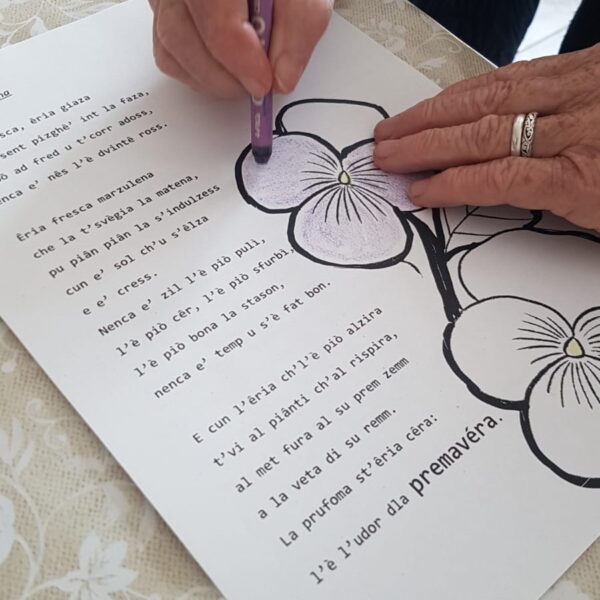 sca, êria giaza
sent pizghê' int la faza,
ad fred u t'corr adoss,
enca e' nês l'è dvintè ross.
Êria fresca marzulena
che la t'svègia la matena,
pu piân piân la s'indulzess
cun e' sol ch'u s'êlza
e e' cress.
Nenca e' zil l'è piò puli,
l'è piò cêr, l'è piò sfurbì,
l'è piò bona la stason,
nenca e' temp u s'è fat bon.
E cun l'êria ch'l'è piò alzira
t'vi al piânti ch'al rispira,
al met fura al su prem zemm
a la veta di su remm.
La prufoma st'êria céra:
l'è l'udor dla premavéra.